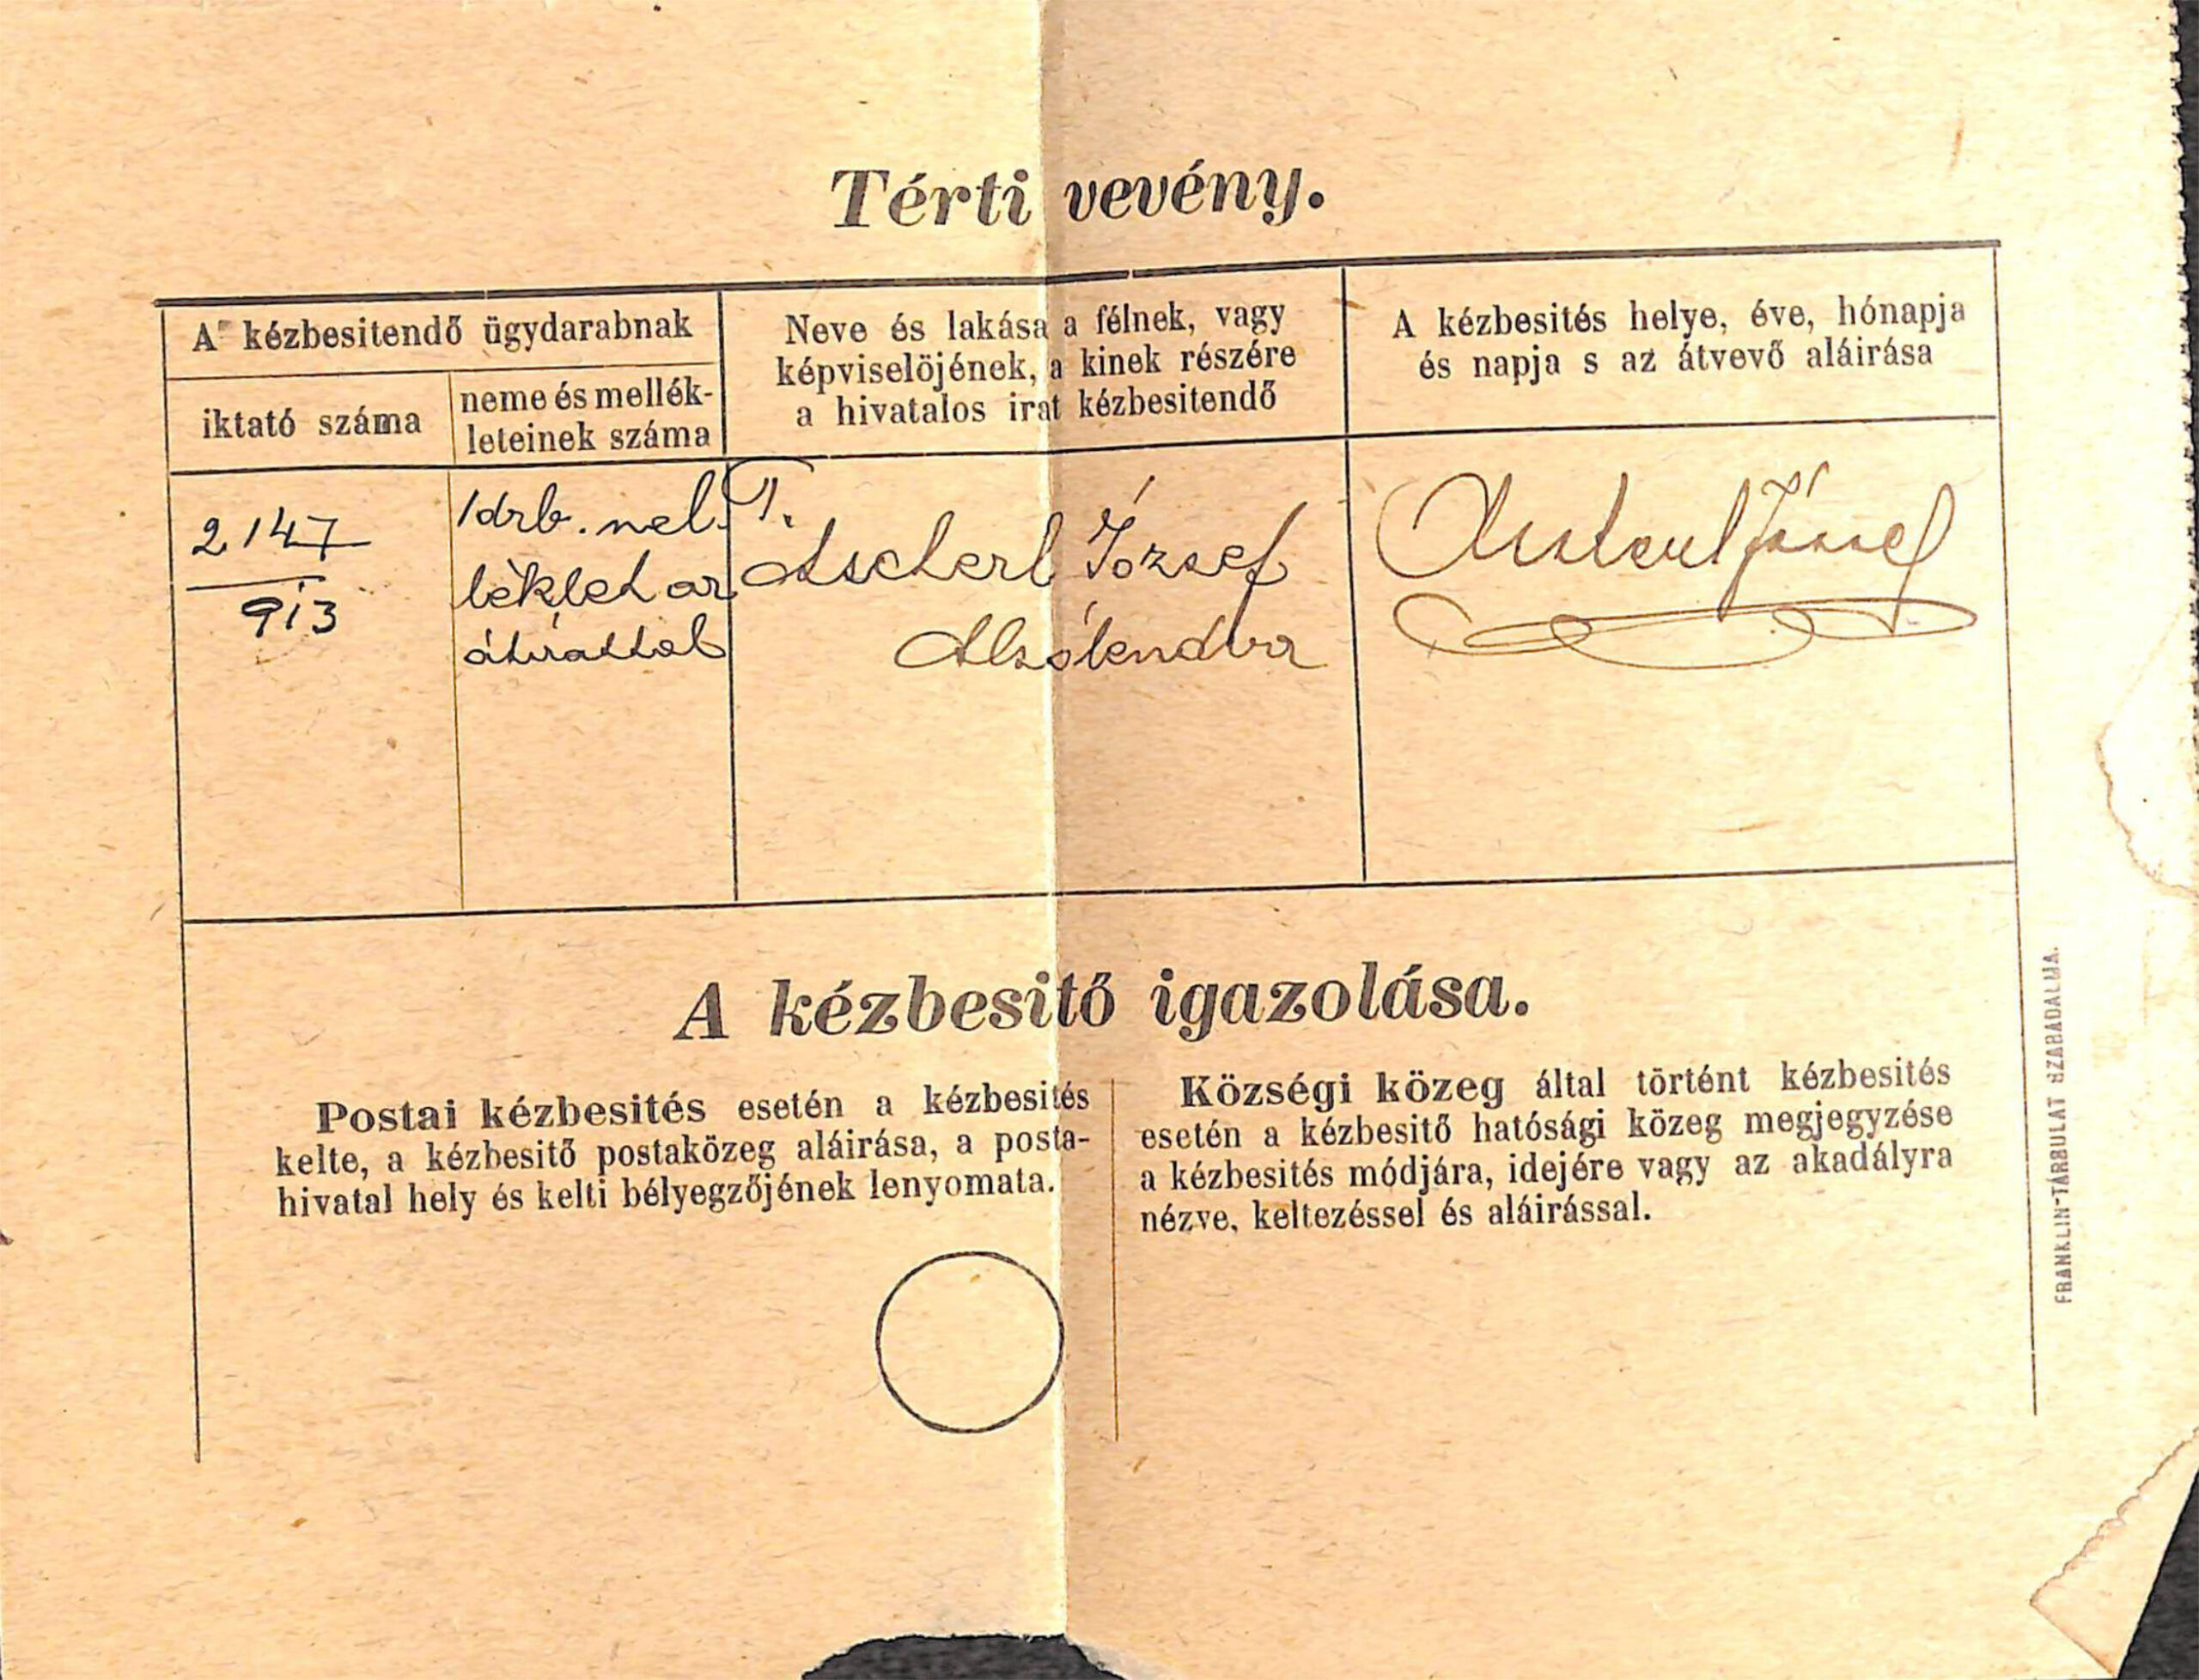 Térti vevény.
A kézbesitendő ügydarabnak
iktató száma
neme és mellék-
leteinek száma
Neve és lakása a félnek, vagy
képviselöjének, a kinek részére
a hivatalos irat kézbesitendő
A kézbesités helye, éve, hónapja
és napja s az átvevő aláirása
2147
913
1 drb. mel
léklet az
átirattal
T.
Ascherl József
Alsólendva
Ascherl József
A kézbesitő igazolása.
Postai kézbesités esetén a kézbesités
kelte, a kézbesitő postaközeg aláirása, a posta-
hivatal hely és kelti bélyegzőjének lenyomata.
Községi közeg által történt kézbesités
esetén a kézbesitő hatósági közeg megjegyzése
a kézbesités módjára, idejére vagy az akadályra
nézve, keltezéssel és aláirással.
FRANKLIN-TÁRSULAT SZABADALMA.